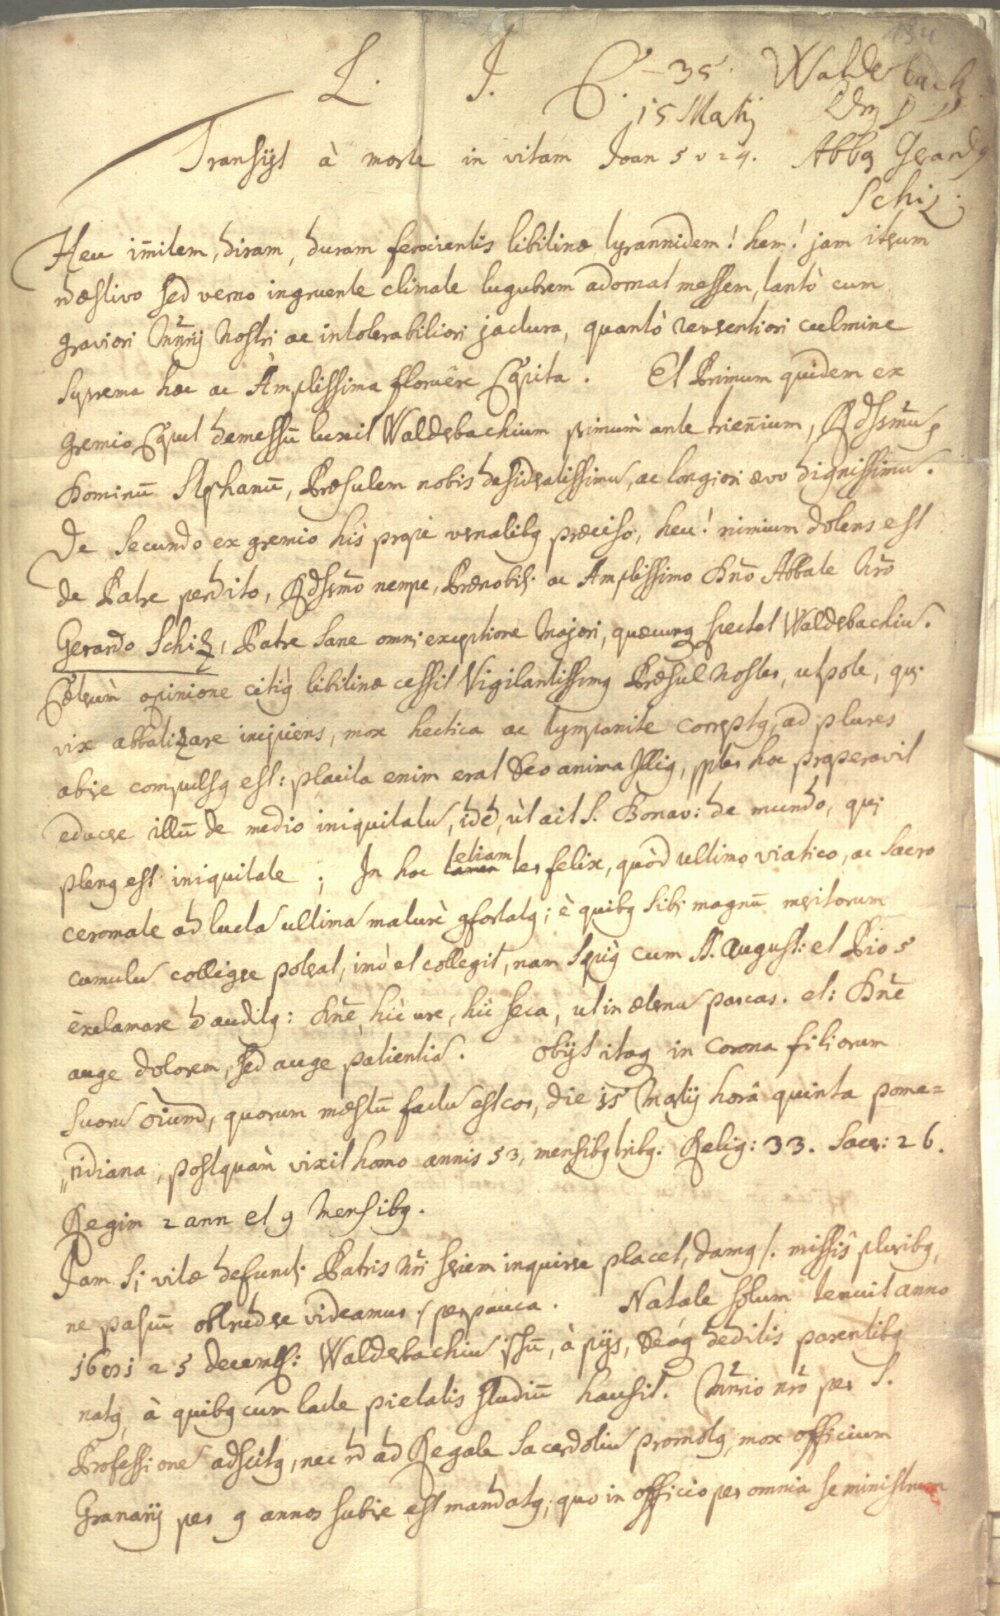 134
L. J. C. – 35. Walderbach.
15 Martij Rdm P P
Transijt à morte in vitam Joan 5 v 24. Abbas Gerardq
Schiz.
Heu im̄item, diram, duram ferocientis libitinæ tyrannidem! hem! jam iterum
n̄ æstivo sed verno ingruente climate lugubrem adornat messem, tantò cum
graviori Mrij Nostri ac intolerabiliori jactura, quantò reverentiori culmine
suprema hæc ac Amplissima floruêre Capita. Et Primum quidem ex
gremio Caput demessū luxit Walderbachium primùm ante trien̄ium, Rdssmū
Dominū Stephanū, Præsulem nobis desideratissimū, ac longiori ævo dignissimū.
De secundo ex gremio his propè vernalibq præciso, heu! nimium dolens est
de Patre perdito, Rdssm̄o nempe, Prænobili ac Amplissimo Dn̄o Abbate Nr̄o
Gerardo Schiz, Patre sane omni exceptione Majori, quæcunq spectet Walderbachiū.
Cæterùm opinione citiq libitinæ cessit Vigilantissimq Præsul Noster, utpote, qui
vix abbatizare incipiens, mox hectica ac tympanite correptq, ad plures
abire compulsq est: placita enim erat Deo anima Illiq, propter hoc properavit
educere illū de medio iniquitatū, id ē, ùt ait S. Bonav: de mundo, qui
plenq est iniquitate; In hoc tamen etiam ter felix, quòd ultimo viatico, ac Sacro
ceromate ad luctā ultimā maturè gfortatq; è quibq sibi magnū meritorum
cumulū colligere poterat, imò et collegit, nam sæpiq cum SS. August: et Pio 5
exclamare ē auditq: Dn̄e, hic ure, hic seca, ut in æternū parcas. et: Dn̄e
auge dolorem, sed auge patientiā. Obijt itaq in corona filiorum
suorū oīum, quorum mæstū factū est cor, die 15 Martij horâ quinta pome=
„ridiana, postquàm vixit homo annis 53, mensibq tribq. Relig: 33. Sacer: 26.
Regim 2 ann et 9 Mensibq.
Jam si vitæ defuncti Patris Nr̄i seriem inquirere placet, damq /. missis pluribq,
ne passū obtrudere videamur ./ perpauca. Natale solum tenuit anno
1661 25 decemb: Walderbachiū ipsū, à pijs, Deoq deditis parentibq
natq, à quibq cum lacte pietatis studiū hausit. Mrio nr̄o per S.
Professionē adscitq, nec n̄ ad Regale Sacerdotiū promotq, mox officium
Granarij per 9 annos subire est mandatq; quo in officio per omnia se ministrum